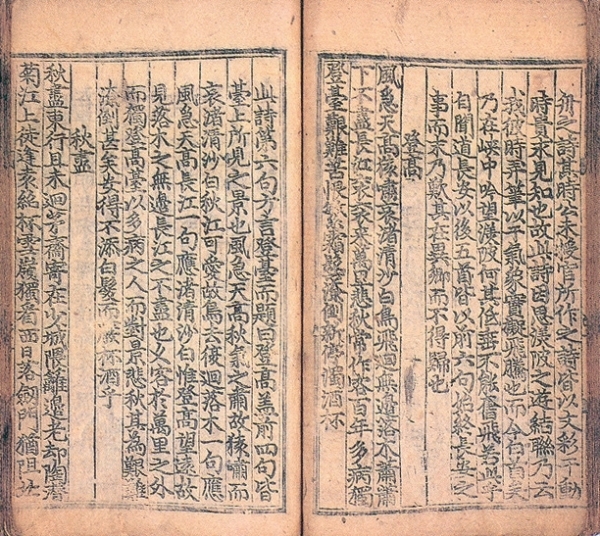 之詩其時公未授官所作之詩皆以文彩干動
時貴求見知也故此詩因思渼陂之遊結聯乃云
我彼時弄筆以干氣象實擬飛騰也而今白首矣
乃在峽中吟望渼陂何其低垂不能奮飛若此乎
自聞道長安以後五首皆以前六句始終長安之
事而末乃歎其在異鄉而不得歸也
登高
風急天高猿嘯哀渚清沙白鳥飛迴無邊落木蕭蕭
下不盡長江衮衮來萬里悲秋常作客百年多病獨
登臺艱難苦恨繁霜鬢潦倒新停濁酒杯
此詩第六句方言登臺而題曰登高蓋前四句皆
臺上所見之景也風急天高秋氣之肅故猿嘯而
哀渚清沙白秋江可愛故鳥去復迴落木一句應
風急天高長江一句應渚清沙白惟登高望遠故
見落木之無邊長江之不盡也久客於萬里之外
而獨登高臺以多病之人而對景悲秋其為艱難
潦倒甚矣安得不添白髮而廢杯酒乎
秋盡
秋盡東行且未迴茅齋寄在少城隈籬邊老却陶潛
菊江上徒逢袁紹杯雪嶺獨看西日落劒門猶阻北